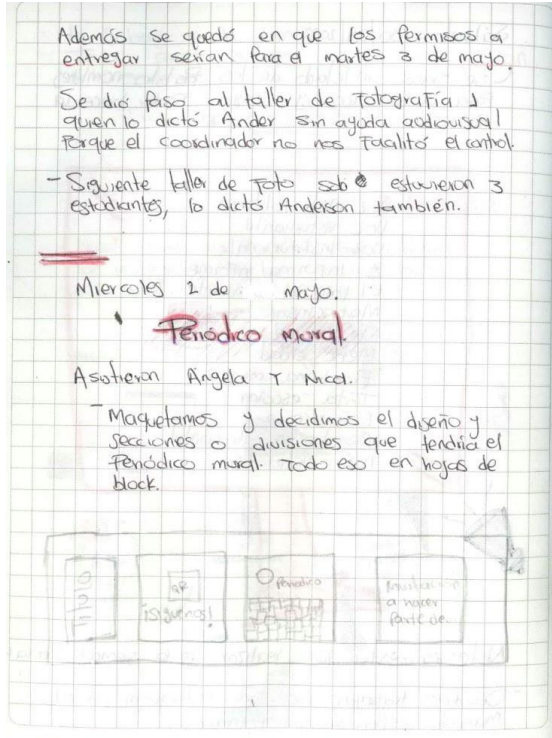 Además se quedó en que los permisos a
entregar serían para el martes 3 de mayo.
Se dió paso al taller de Fotografía 1
quien lo dictó Ander sin ayuda audiovisual
Porque el coordinador no nos Facilitó el control.
- Siguiente taller de Foto solo estuvieron 3
estudiantes, lo dictó Anderson también.
Miercoles 2 de mayo.
Periódico mural.
Asistieron Angela Y Nicol.
- Maquetamos y decidimos el diseño y
secciones o divisiones que tendría el
Periódico mural. Todo eso en hojas de
block.
QR
¡Siguenos!
Periodico
a hacer
Parte de